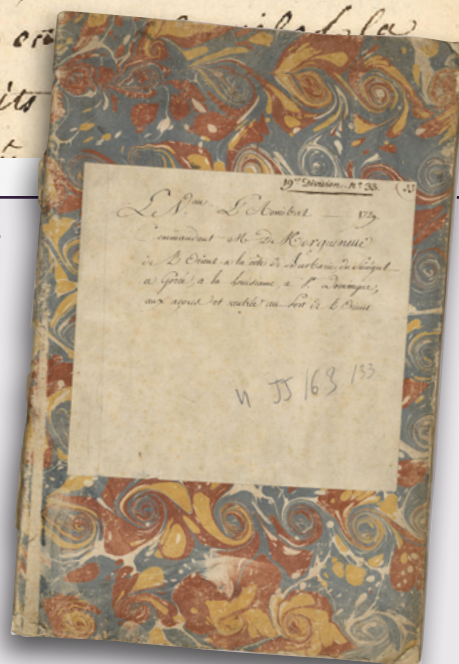 la
its
19me Division. n° 33. (33
Le Vau L'Annibal — 1729
Commandant Mr De Kerguenel
de L'Orient a la côte de Barbarie, du Sénégal
a Gorée, a la Louisiane a St. Domingue,
aux açores et rentré au Port de L'Orient
4 JJ 163 / 33